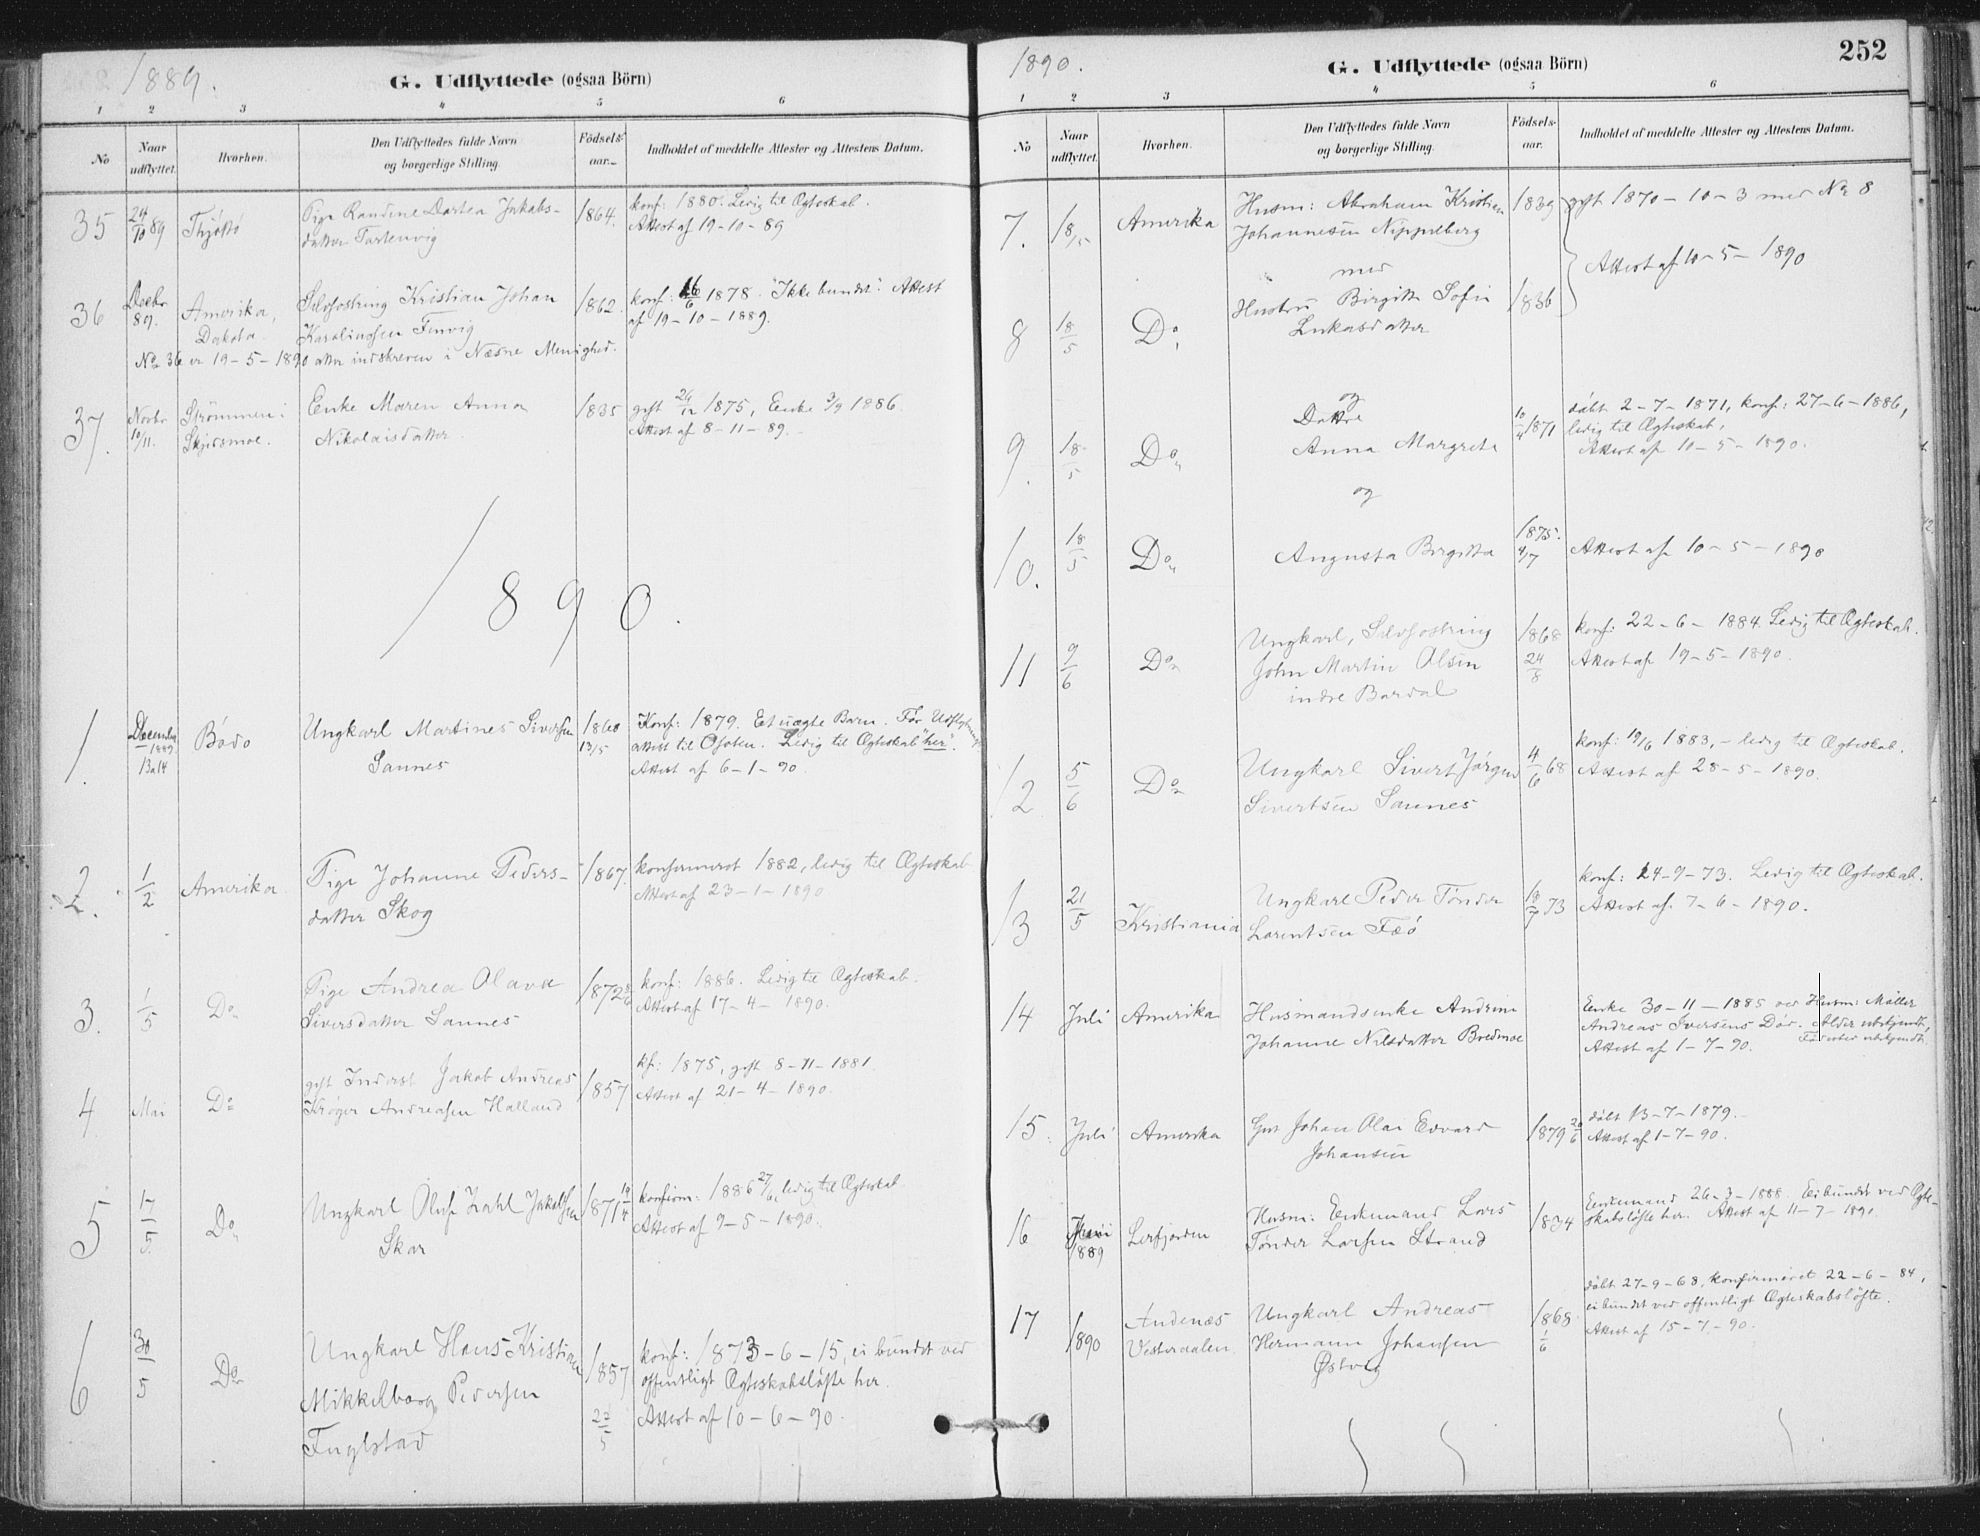 1889.
G. Udflyttede (ogsaa Börn)
1 2 3 4 5 6
No
Naar udflyttet.
Hvorhen.
Den Udflyttedes fulde Navn
og borgerlige Stilling.
Födsels-
aar.
Indholdet af meddelte Attester og Attestens Datum.
35 24/10 89 Thjøttø Pige Randine Dortea Jakobs- 1864. konf: 1880. Ledig til Ægteskab.
datter Attest af 19-10-89
36 Decbr 89. Amerika, Selvfostring Kristian Johan 1862. konf: 16/6 1878. "Ikke bundet". Attest
Dakota. Karolinusen Finvig af 19-10-1889.
No 36 er 19-5-1890 atter indskreven i Næsne Menighed.
37. Novbr 10/11. Strømmen i Enke Maren Anna 1835 gift 26/12 1875, Enke 3/9 1886
Skjersmoe. Nikolaisdatter. Attest af 8-11-89.
1890.
1. December 1889. 13a14 Bodø Ungkarl Martines Siversen 1860 13/5 Konf: 1879. Et uægte Barn. Før Udflytnings
Sannes attest til Ofoten. Ledig til Ægteskab "her".
Attest af 6-1-90.
2. 1/2 Amerika Pige Johanne Peders- 1867. konfirmeret 1882, ledig til Ægteskab
datter Skog Attest af 23-1-1890
3. 1/5 Do Pige Andrea Olava 1872 konf: 1886. Ledig til Ægteskab.
Siversdatter Sannes Attest af 17-4-1890.
4. Mai Do gift Inderst Jakob Andreas 1857 kf: 1875, gift 8-11-1881.
Krøger Andreasen Halland Attest af 21-4-1890.
5 17/5 Do Ungkarl Oluf Zahl Jakobsen 1871 19/4 konfirm: 1886 27/6, ledig til Ægteskab
Skar Attest af 9-5-1890.
6 30/5 Do Ungkarl Hans Kristian 1857 22/5 konf: 1873-6-15, ei bundet ved
Mikkelborg Pedersen offentligt Ægteskabsløfte her.
Fuglstad Attest af 10-6-90.
1890.
G. Udflyttede (ogsaa Börn)
252
1 2 3 4 5 6
No
Naar udflyttet.
Hvorhen.
Den Udflyttedes fulde Navn
og borgerlige Stilling.
Födsels-
aar.
Indholdet af meddelte Attester og Attestens Datum.
7. 18/5 Amerika Husm: Abraham Kristian 1839 gift 1870-10-3 med No 8
Johannesen Nippelberg
med Attest af 10-5-1890
8 18/5 Do Hustru Birgitte Sofie 1836
Lukasdatter
og
9. 18/5 Do Datter 10/4 1871 døbt 2-7-1871, konf: 27-6-1886,
Anna Margrete ledig til Ægteskab,
Attest af 10-5-1890.
og
10. 18/5 Do Augusta Birgitta 1875. 4/7 Attest af 10-5-1890
11 9/6 Do Ungkarl, Selvfostring 1868 24/8 konf: 22-6-1884. Ledig til Ægteskab.
John Martin Olsen Attest af 19-5-1890.
indre Bardal
12 5/6 Do Ungkarl Sivert Jørgen 4/6 68 konf: 19/6 1883, - ledig til Ægteskab.
Sivertsen Sannes Attest af 28-5-1890.
13 21/5 Kristiania Ungkarl Peder Tønder 73 konf: 24-9-73. Ledig til Ægteskab.
Lorentsen Fæø Attest af 7-6-1890.
14 Juli Amerika Husmandsenke Andrine Enke 30-11-1885 ved Husm: Møller
Johanne Nilsdatter Bredmoe Andreas Iversens Død. Alder ubekjendt,
Attest af 1-7-90. Fødested ubekjendt.
15. Juli Amerika Gut Johan Olai Edvard 1879 20/6 døbt 13-7-1879.
Johansen Attest af 1-7-90.
16 1889 Leirfjorden Husm: Enkemand Lars 1834 Enkemand 26-3-1888. Ei bundet ved Ægte-
Tønder Larsen Strand skabsløfte her. Attest af 11-7-1890.
17 1890 Andenæs Ungkarl Andreas 1868 1/6 døbt 27-9-68, konfirmeret 22-6-84,
Vesteraalen. Hermann Johansen ei bundet ved offentligt Ægteskabsløfte.
Østvig Attest af 15-7-90.